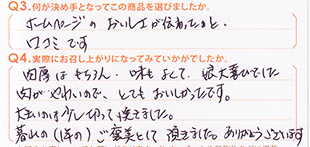 Q3.何が決め手となってこの商品を選びましたか。
ホームページの おいしさが伝わったのと、
口コミです
Q4.実際にお召し上がりになってみていかがでしたか。
肉厚は もちろん、味もよくて、娘大喜びでした
肉がやわいので、とても おいしかったです。
大きいのは少し切って頂きました。
暮れの(1年の)ご褒美として 頂きました。ありがとうございます